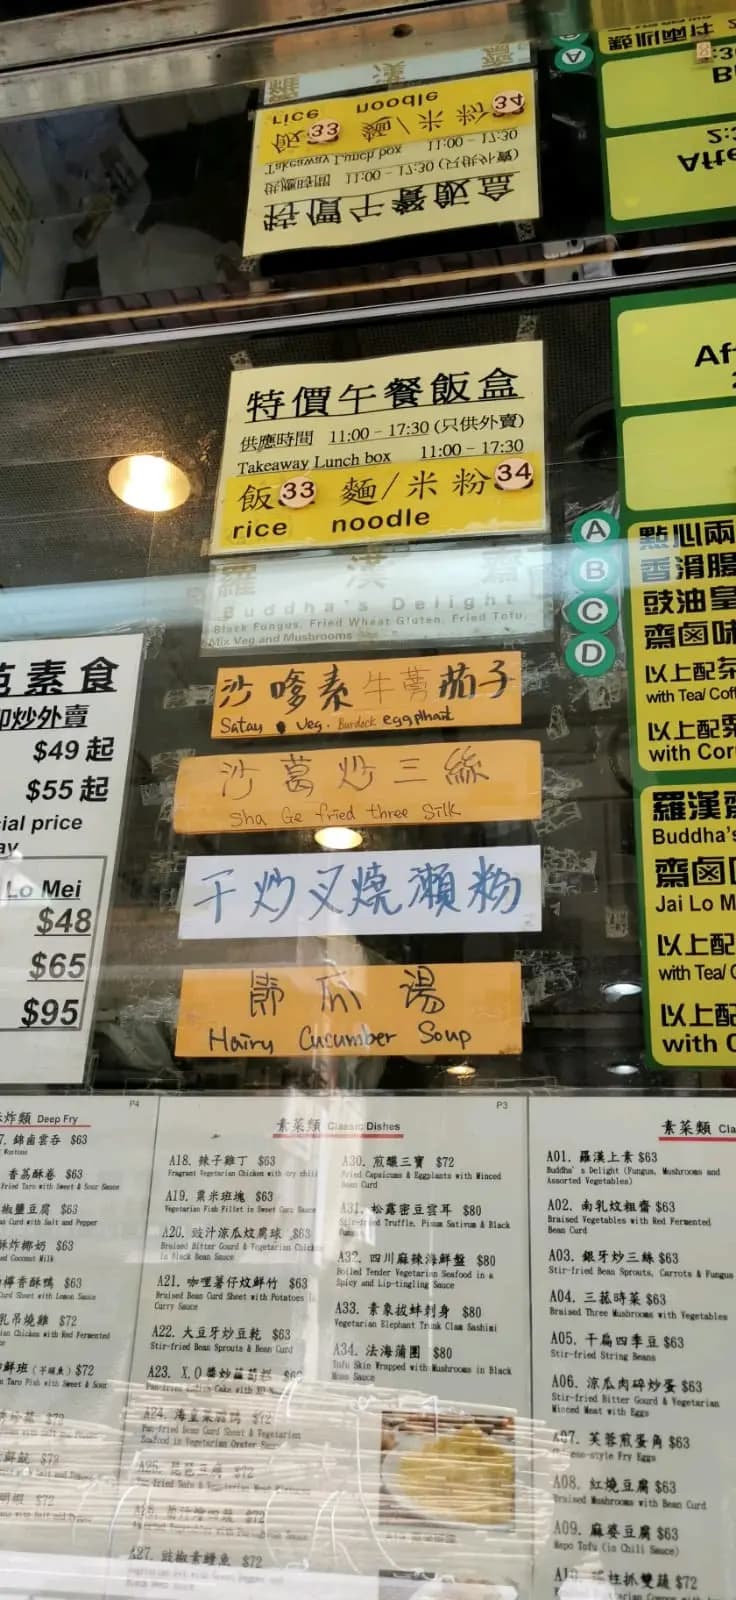 特價午餐飯盒
供應時間 11:00 - 17:30 (只供外賣)
Takeaway Lunch box 11:00 - 17:30
飯33 麵/米粉34
rice noodle
羅漢齋
Buddha's Delight
Black Fungus, Fried Wheat Gluten, Fried Tofu,
Mix Veg and Mushrooms
沙嗲素牛蒡茄子
Satay Veg. Burdock eggplant
沙葛炒三絲
Sha Ge fried three Silk
干炒叉燒瀨粉
節瓜湯
Hairy Cucumber Soup
素食
炒外賣
$49 起
$55 起
cial price
ay
Lo Mei
$48
$65
$95
Af
A
B
C
D
點心兩
香滑腸
豉油皇
齋鹵味
以上配茶
with Tea/ Coff
以上配粟
with Cor
羅漢齋
Buddha's
齋鹵
Jai Lo M
以上配
with Tea/ C
以上配
with C
P4
炸類 Deep Fry
7. 錦鹵雲吞 $63
香荔酥卷 $63
ried Taro with Sweet & Sour Sauce
椒鹽豆腐 $63
an Curd with Salt and Pepper
酥炸椰奶 $63
ed Coconut Milk
檸香酥鴨 $63
Curd Sheet with Lemon Sauce
乳吊燒雞 $72
ian Chicken with Red Fermented
鮮班 (芋頭魚) $72
n Taro Fish with Sweet & Sour
$72
$72
明蝦 $72
P3
素菜類 Classic Dishes
A18. 辣子雞丁 $63
Fragrant Vegetarian Chicken with dry chili
A19. 粟米班塊 $63
Vegetarian Fish Fillet in Sweet Corn Sauce
A20. 豉汁涼瓜炆腐球 $63
Braised Bitter Gourd & Vegetarian Chicken
in Black Bean Sauce
A21. 咖哩薯仔炆鮮竹 $63
Braised Bean Curd Sheet with Potatoes in
Curry Sauce
A22. 大豆牙炒豆乾 $63
Stir-fried Bean Sprouts & Bean Curd
A23. X.O醬炒蘿蔔糕 $63
Pan-fried Radish Cake with XO
A24. 海皇菜脯鴨 $72
Pan-fried Bean Curd Sheet & Vegetarian
Seafood in Vegetarian Oyster Sauce
A25. 琵琶豆腐 $72
$72
A27. 豉椒素鱔魚 $72
A30. 煎釀三寶 $72
Fried Capsicums & Eggplants with Minced
Bean Curd
A31. 松露密豆雲耳 $80
Stir-fried Truffle, Pisum Sativum & Black
A32. 四川麻辣海鮮盤 $80
Boiled Tender Vegetarian Seafood in a
Spicy and Lip-tingling Sauce
A33. 素象拔蚌刺身 $80
Vegetarian Elephant Trunk Clam Sashimi
A34. 法海蒲團 $80
Tofu Skin Wrapped with Mushrooms in Black
Moss Sauce
素菜類 Cla
A01. 羅漢上素 $63
Buddha's Delight (Fungus, Mushrooms and
Assorted Vegetables)
A02. 南乳炆粗齋 $63
Braised Vegetables with Red Fermented
Bean Curd
A03. 銀牙炒三絲 $63
Stir-fried Bean Sprouts, Carrots & Fungus
A04. 三菰時菜 $63
Braised Three Mushrooms with Vegetables
A05. 干扁四季豆 $63
Stir-fried String Beans
A06. 涼瓜肉碎炒蛋 $63
Stir-fried Bitter Gourd & Vegetarian
Minced Meat with Eggs
A07. 芙蓉煎蛋角 $63
Chinese-style Fry Eggs
A08. 紅燒豆腐 $63
Braised Mushrooms with Bean Curd
A09. 麻婆豆腐 $63
Mapo Tofu (in Chili Sauce)
瑤柱抓雙蔬 $72